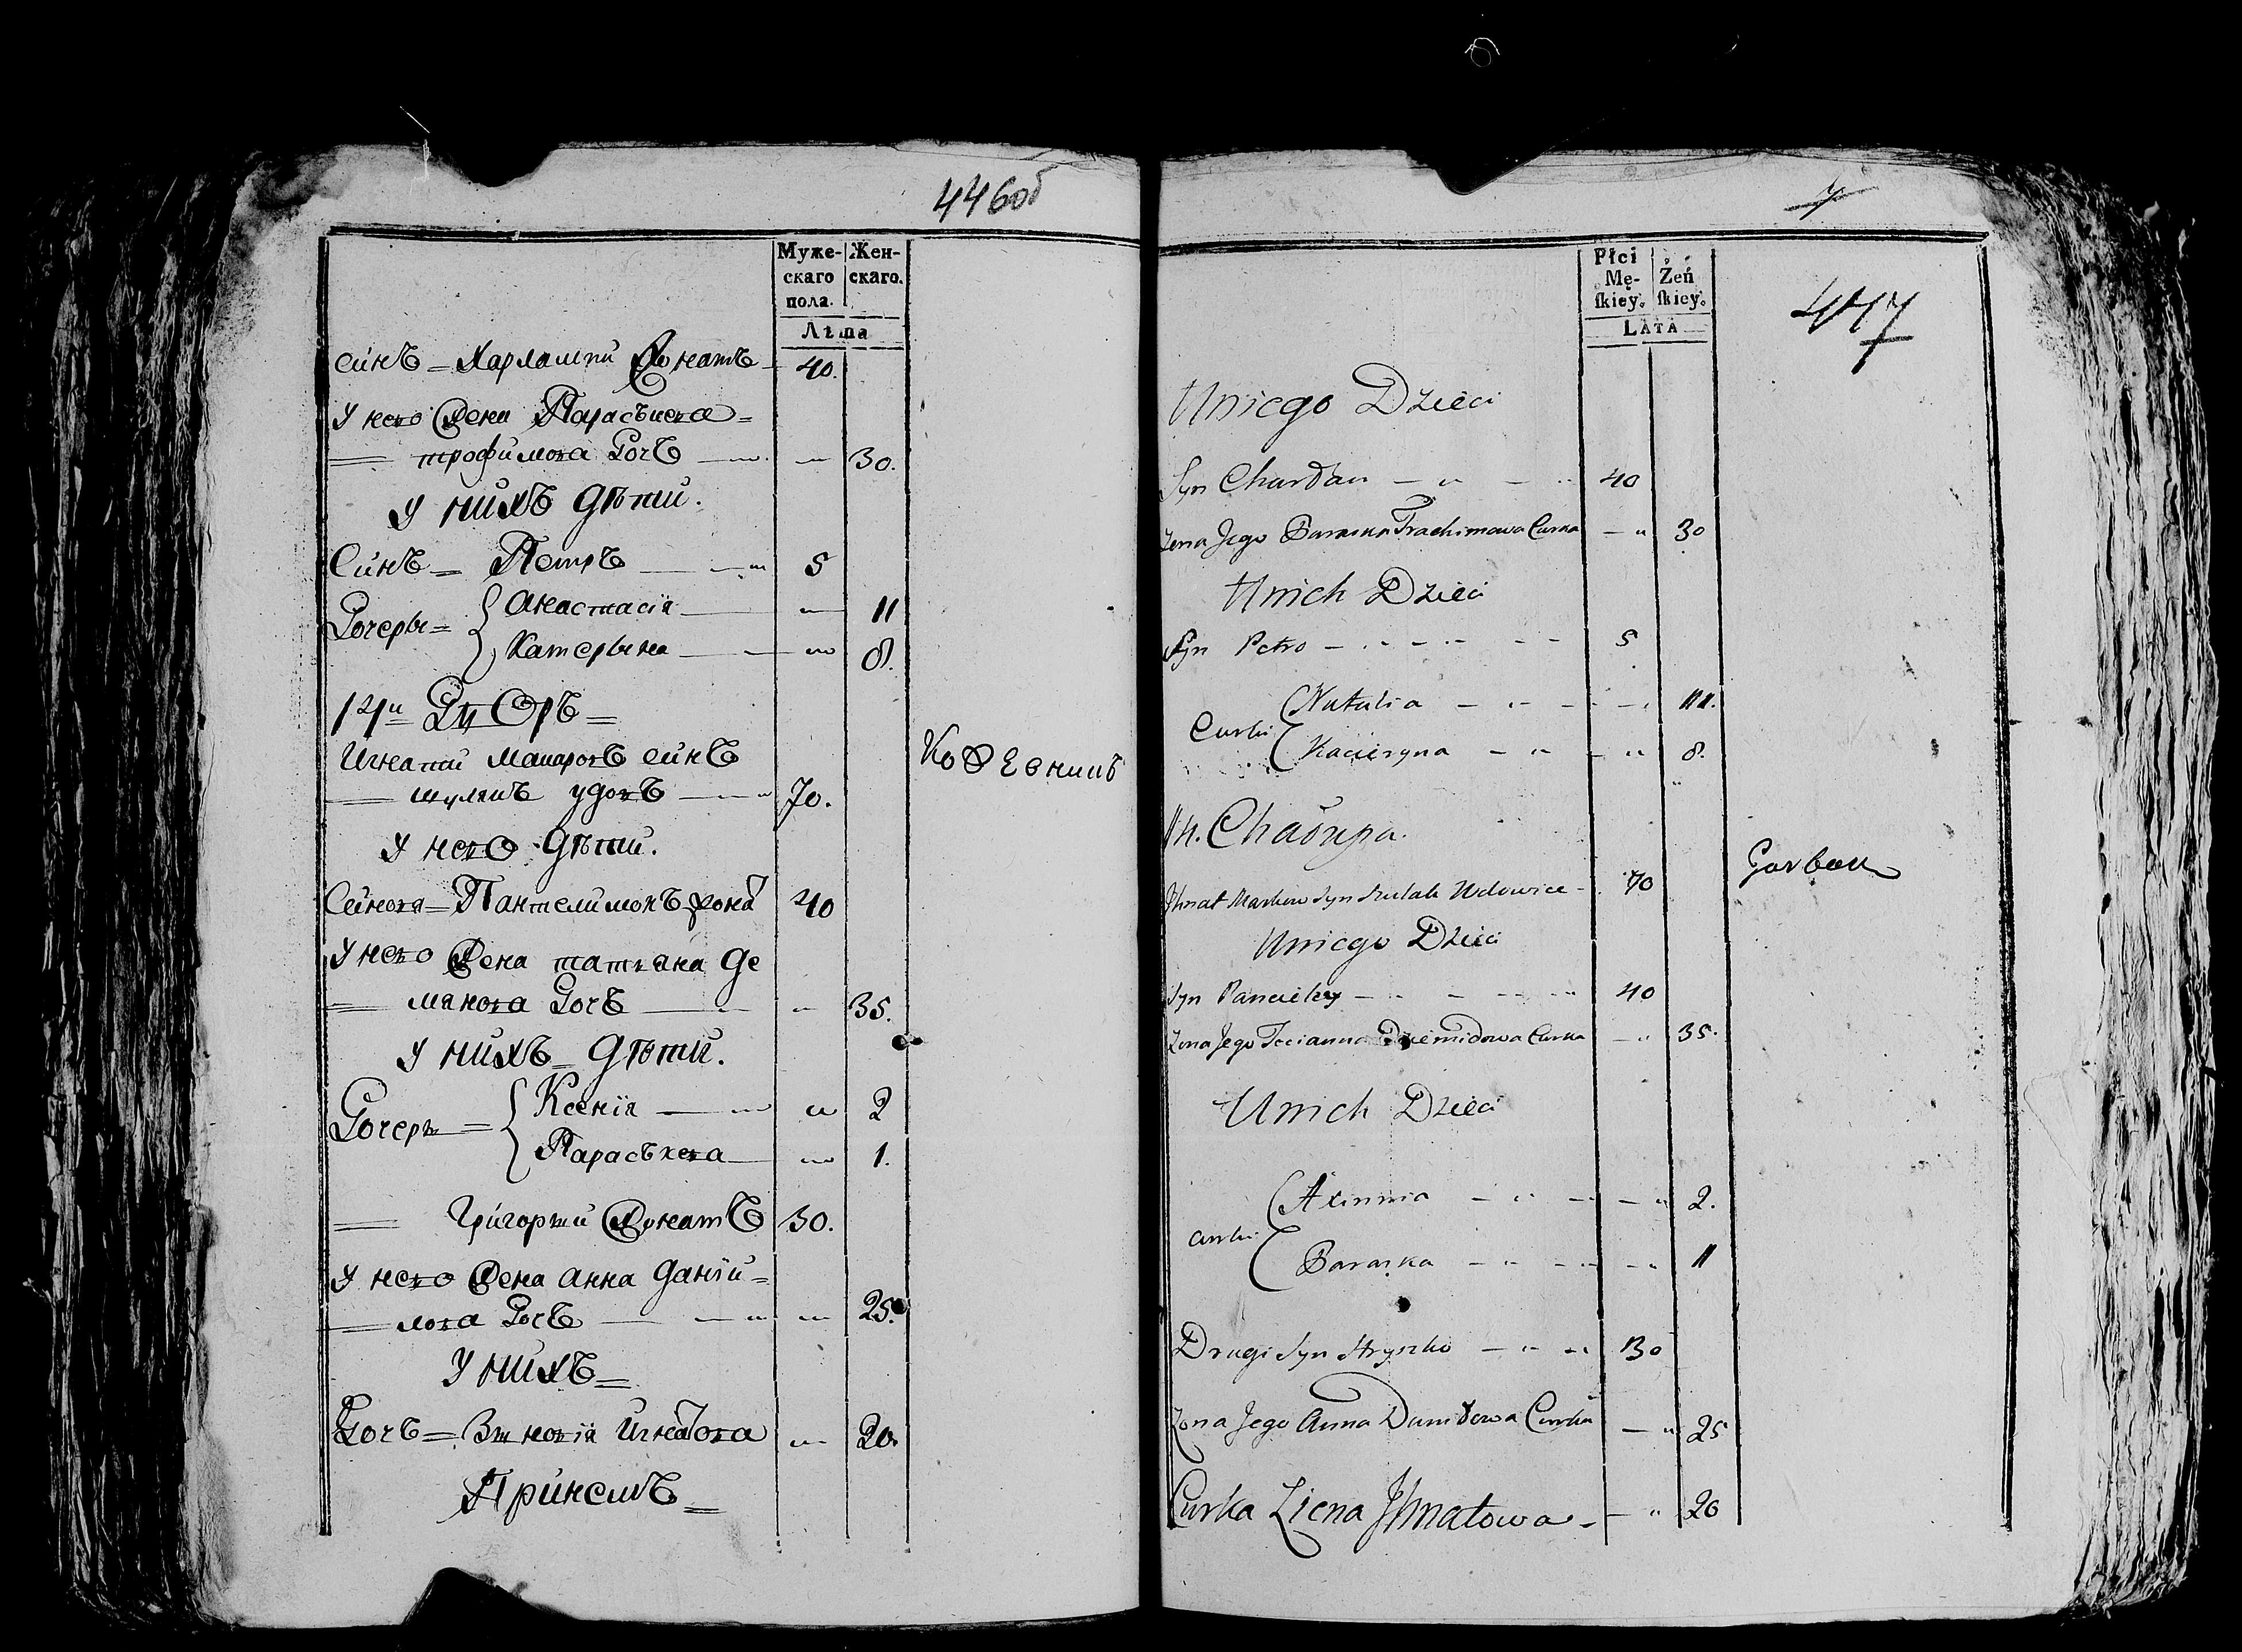 446об
Муже- Жен-
скаго скаго.
пола.
Лѣта
синъ = Харлампий Жонатъ 40.
У него Жена Парасъкева =
= трофимова Дочъ — " 30.
У нихъ Дѣти.
Синъ = Петръ — " 5
Дочеры = { Анастасія — " 11
Катерына — " 8.
14й Дворъ =
Игнатий Макаровъ синъ
= шулякъ удовъ — " 70.
Кожевникъ
У него Дѣти.
Синова = Пантелимонъ жонат 40
У него Жена татъяна Де
= мянова Дочъ — " 35.
У нихъ = Дѣти.
Дочеръ = { Ксенія — " 2
Парасъкева — " 1.
= Григорий Жонатъ 30.
У него Жена анна Даній =
= лова Дочъ — " 25.
У нихъ =
Дочъ = Зѣновія Игнатова " 20.
7
447
Płci
Mę- Żeń
skiey. skiey.
LATA
Uniego Dzieci
Syn — " — " 40
Żena Jego Paraska Trachimowa Curka — " 30
Unich Dzieci
Syn Petro — " — " — 5
Curki ( Natalia — " — " 11.
( Kacieryna — " — " 8.
14. Chałupa.
Ihnat Markow Syn Szulak Wdowiec — 70
Garbarz
Uniego Dzieci
Syn Panciely — " — " 40
Żona Jego Tecianna Dziemidowa Curka — " 35.
Unich Dzieci
Curki ( Axinnia — " — " 2.
( Paraska — " — " 11
Drugi Syn Hryszko — " — " 30
Żona Jego Anna Daniłowa Curka — " 25
Curka Ziena Ihnatowa — " 20